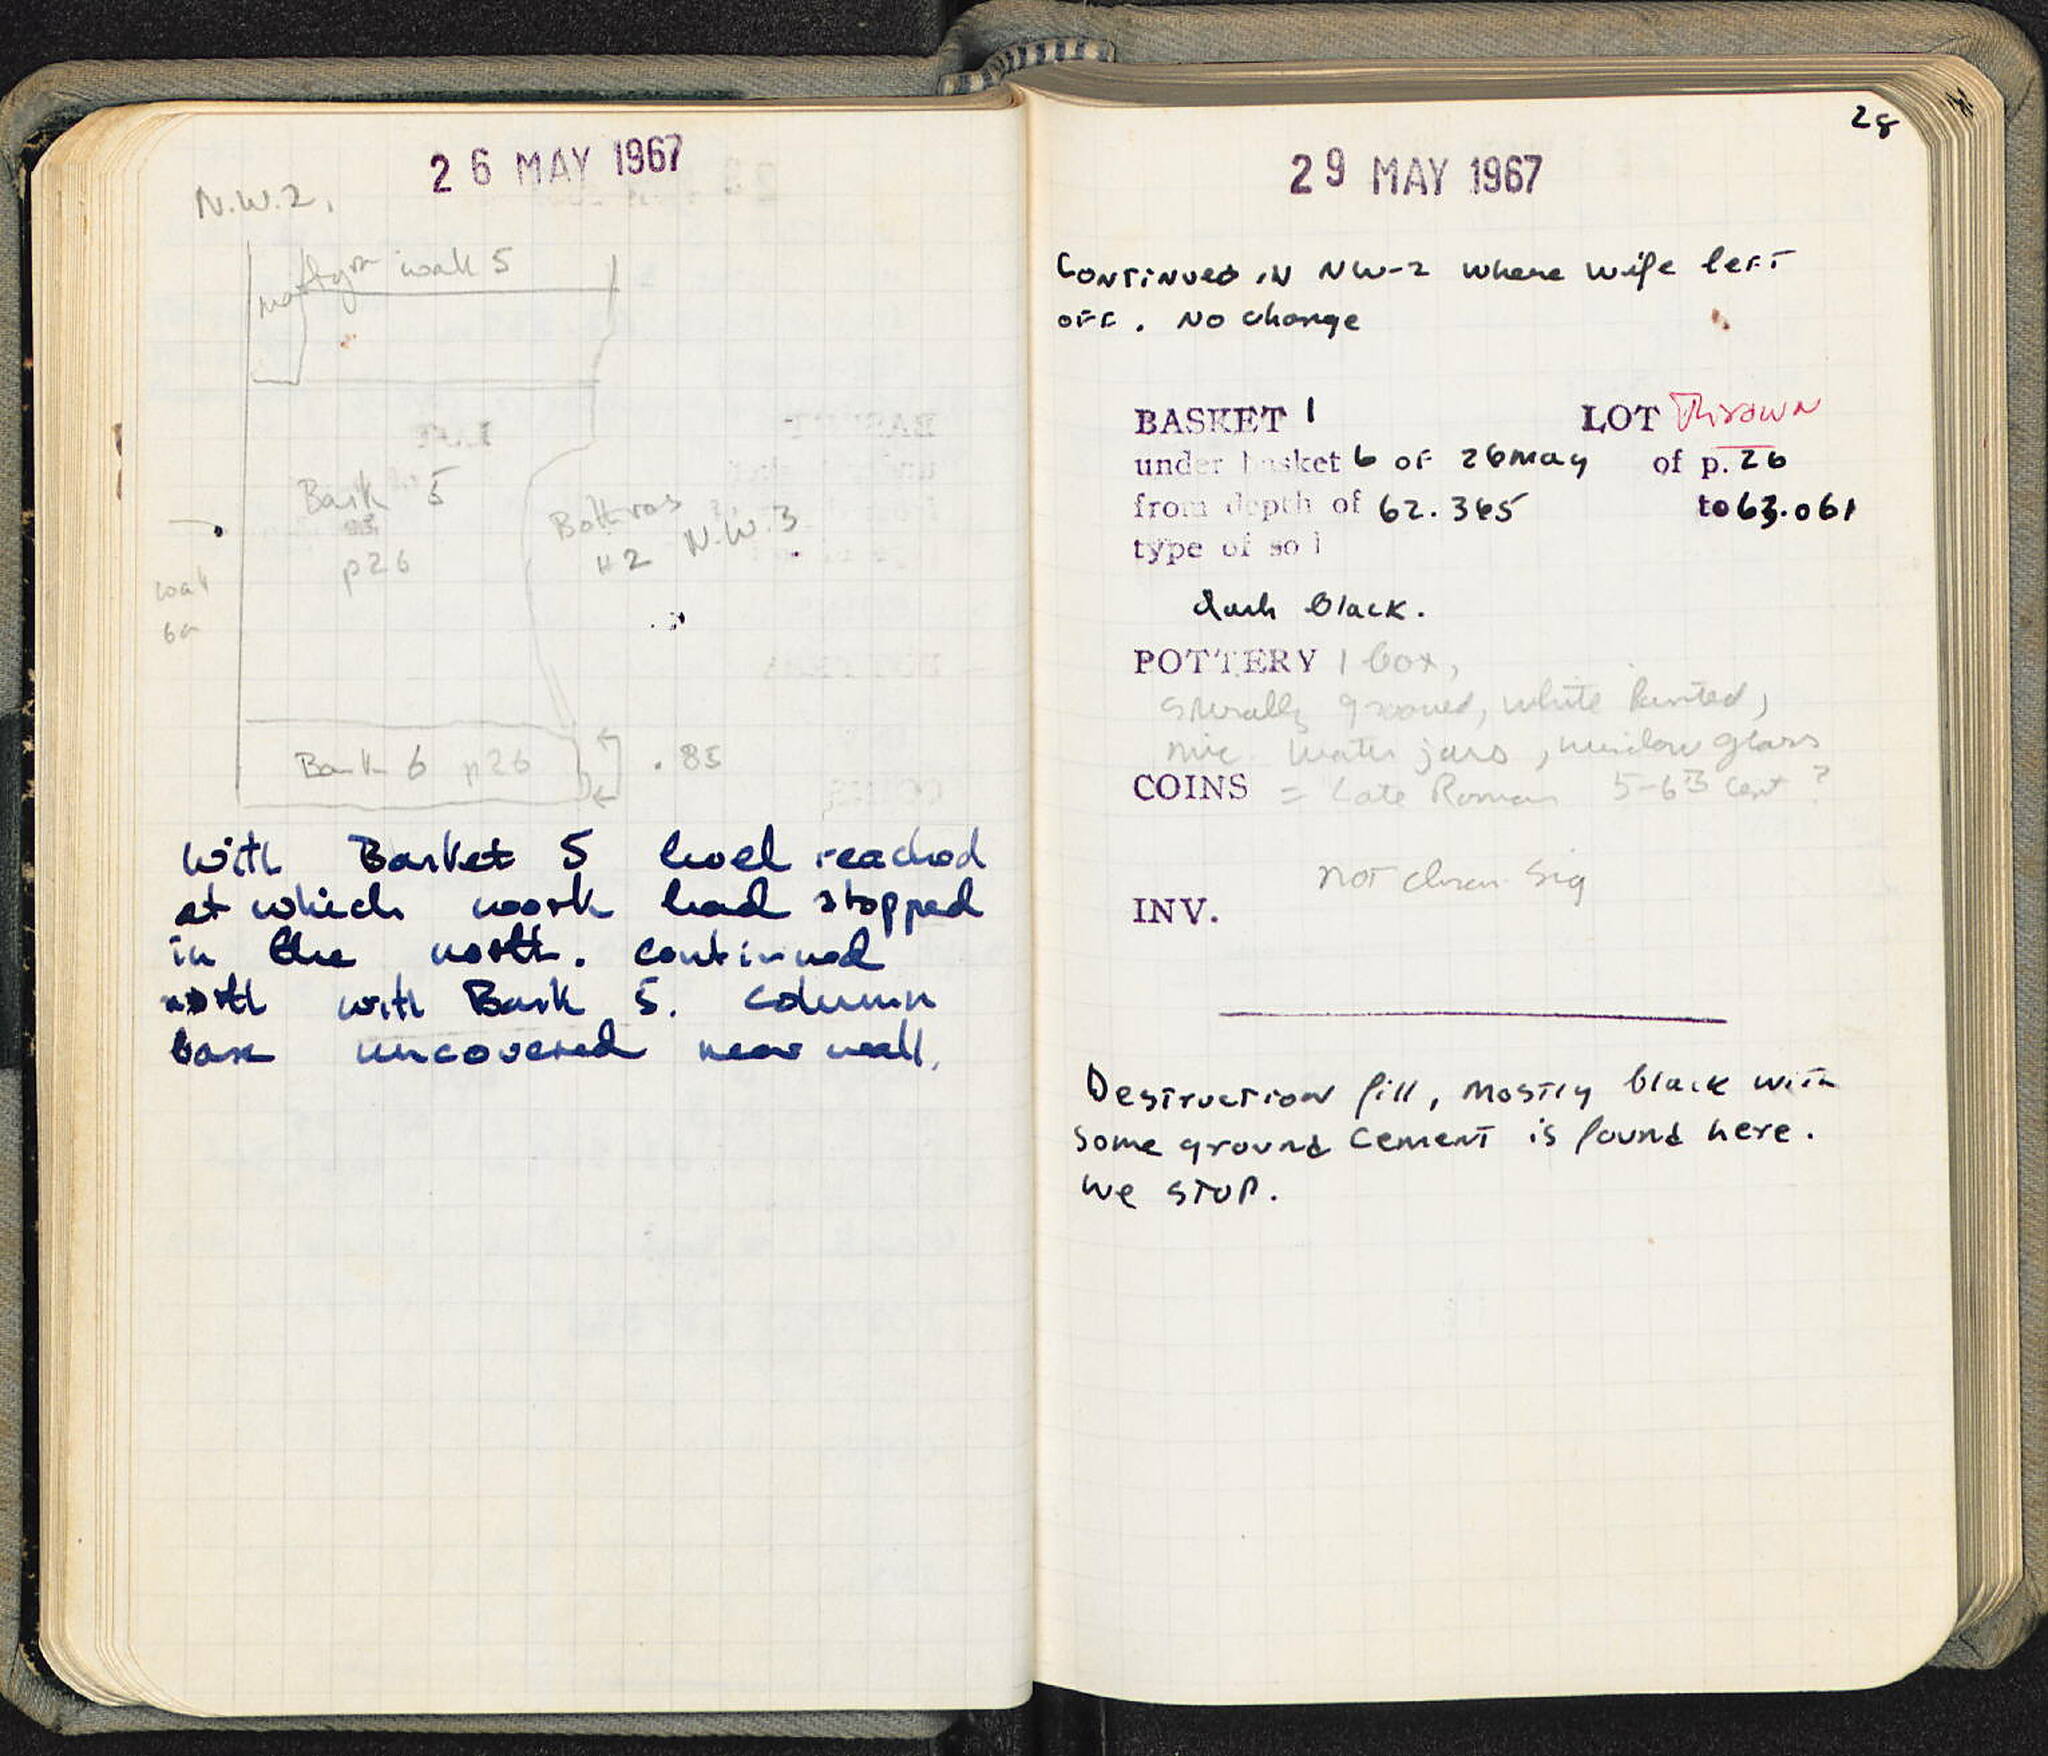 26 MAY 1967
N.W.2.
wall 5
Bask 5
p26
Bothros
#2 N.W.3
wall
6a
Bask 6 p26
.85
with Basket 5 level reached
at which work had stopped
in the north. continued
north with Bask 5. column
base uncovered near wall.
28
29 MAY 1967
Continued in NW-2 where wife left
off. No change
BASKET 1 LOT Thrown
under basket 6 of 26 May of p. 26
from depth of 62.365 to 63.061
type of soil
dark black.
POTTERY 1 box,
spirally grooved, white painted,
mic. water jars, window glass
COINS = Late Roman 5-6th cent ?
not chron. sig
INV.
Destruction fill, mostly black with
some ground cement is found here.
we stop.